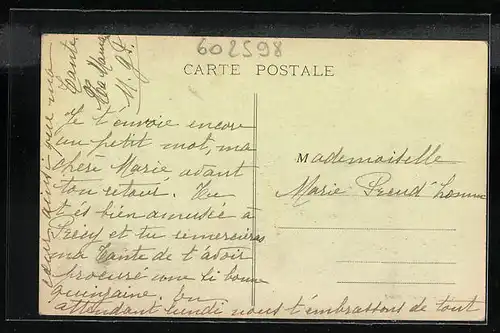 602598
CARTE POSTALE
Je t'envoie encore
un petit mot, ma
chère Marie, avant
ton retour. Tu
t'és bien amusée à
Precy et tu remercieras
ma Tante de t'avoir
procuré une si bonne
quinzaine. En
attendant lundi nous t'embrassons de tout
cœur ainsi que ma
Tante.
Ta Maman
Mademoiselle
Marie Preud'homme